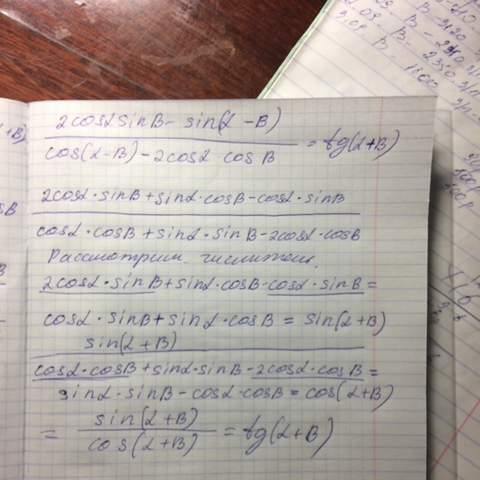 2cosα sinB - sin(α - B)
cos(α-B) - 2cosα · cos B = tg(α+B)
2cosα · sinB + sinα · cosB - cosα · sinB
cosα · cosB + sinα · sinB - 2cosα · cosB
Рассмотрим числитель.
2cosα · sinB + sinα · cosB - cosα · sinB =
cosα · sinB + sinα · cosB = sin(α+B)
sin(α+B)
cosα · cosB + sinα · sinB - 2cosα · cosB =
sinα · sinB - cosα · cosB = cos(α+B)
= sin(α+B)
cos(α+B) = tg(α+B)